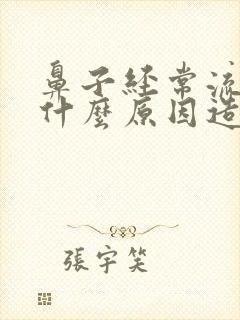 鼻子經常流
什麼原因造
張宇笑